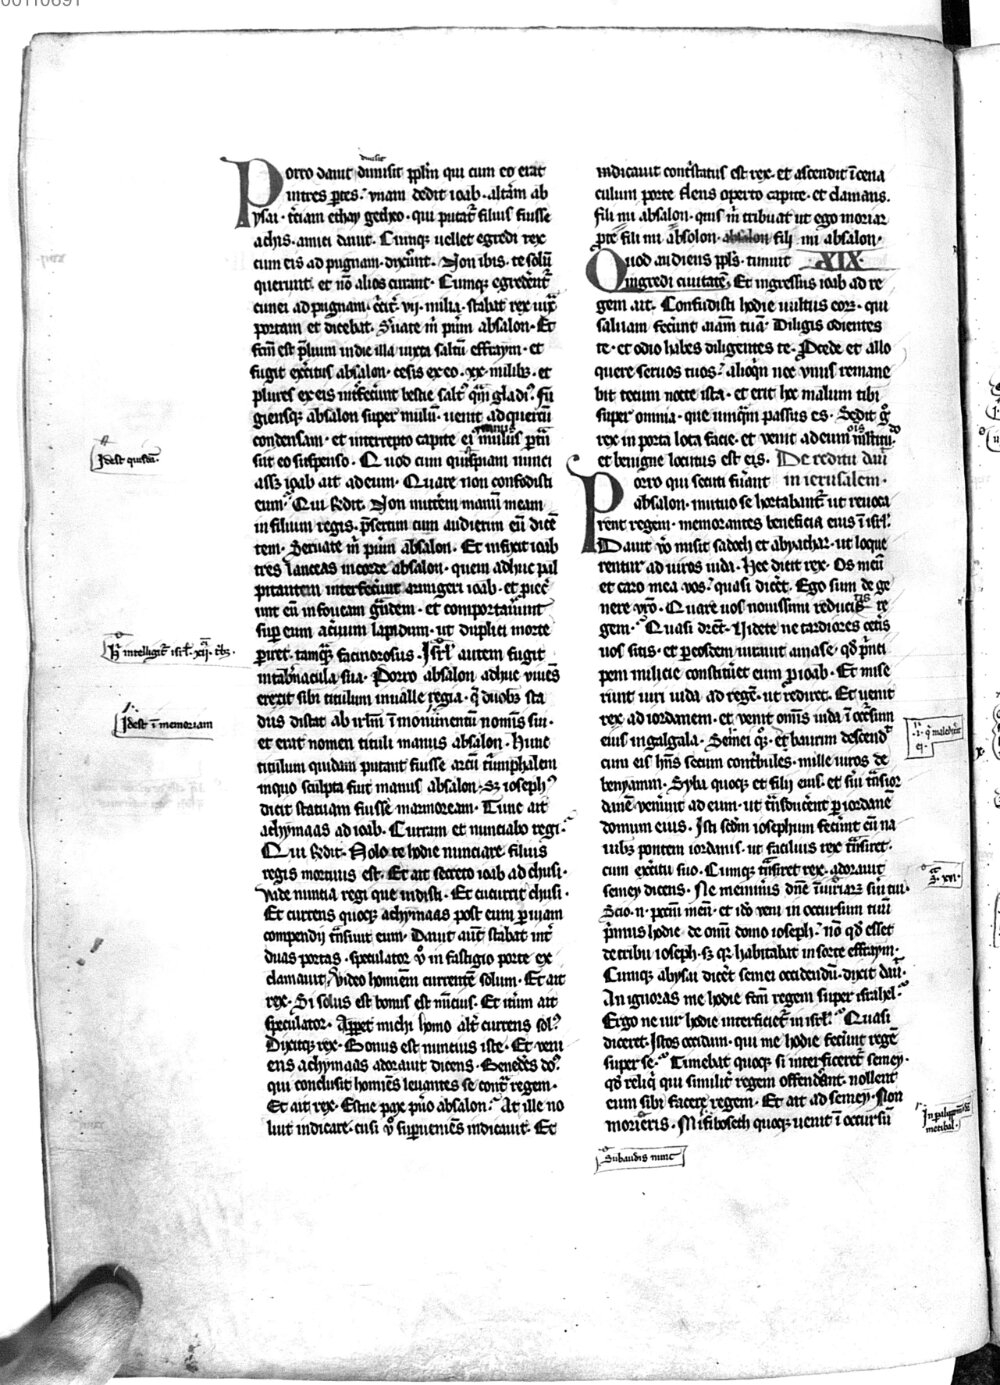 diuisit
Porro dauit dimisit ppl̄m qui cum eo erat
in tres ꝑtes· vnam dedit ioab· altam ab
ysai· t̄ciam ethay getheo· qui putat̄ filius fuisse
achis· amici dauit· Cumqꝫ uellet egredi rex
cum eis ad pugnam· dixerunt· Non ibis· te solū
querunt· et nō alios curant· Cumqꝫ egrederent̄
cunei ad pugnam· c̄cit̄· vij· milia· stabat rex iux̄
portam et dicebat· S̄uate m̄ pūm absalon· Et
fc̄m est p̄lium in die illa iuxta saltū effraym· et
fugit exc̄itus absalon· cesis ex eo· xx· milibꝫ· et
plures ex eis int̄fecerunt bestie salt9 qm̄ gladi9· fu
giensqꝫ absalon super mulū· uenit ad quercū
condensam· et intercepto capite ei9 mulus ꝑtn̄
siit eo suspenso· Quod cum quispiam nunci
ass̄ ioab ait ad eum· Quare non confodisti
eum· Qui r̄dit· Non mitterem manū meam
in filium regis· p̄sertim cum audierim eū dicē
tem· Seruate m̄ pūm absalon· Et infixit ioab
tres lanceas in corde absalon· quem adhuc pal
pitantem interfecerunt armigeri ioab· et piec̄
unt eū in foueam g̈ndem· et comportauerunt
suꝑ eum aceruum lapidum· ut duplici morte
periret· tamqꝫ facinorosus· Isrl̄ autem fugit
in tab̄nacula sua· Porro absalon adhuc viuēs
erexit sibi titulum in ualle regia· q̄ duobꝫ sta
diis distat ab irlm̄ ī monumentū nominis sui·
et erat nomen tituli manus absalon· Hunc
titulum quidam putant fuisse arcū triumphalem
in quo sculpta fuit manus absalon· sꝫ ioseph9
dicit statuam fuisse marmoream· Tunc ait
achymaas ad ioab· Curram et nunciabo regi·
Qui r̄dit· Nolo te hodie nunciare· filius
regis mortuus est· Et ait secreto ioab ad chusi·
vade nuncia regi que uidisti· Et cucurrit chusi·
Et currens quoqꝫ achymaas post eum ꝑ uiam
compendij t̄nsiuit eum· Dauit aut̄ stabat int̄
duas portas· speculator v̊ in fastigio porte ex
clamauit· video hominem currentē solum· Et ait
rex· Si solus est bonus est nūcius· Et itūm ait
speculator· Appet michi homo alt̄ currens sol9
Dixitqꝫ rex· Bonus est nuncius iste· Et veni
ens achymaas adorauit dicens· Benedc̄s do9
qui conclusit homines leuantes se cont̄ regem·
Et ait rex· Estne pax puo absalon· At ille no
luit indicare· cusi v̊ supueniēs indicauit· Et
Idest quidam·
h̊ intelligit̄ isrl̄· xij· tb9·
Idest ī memoriam
indicauit cont̄status est rex· et ascendit ī cena
culum porte flens operto capite· et clamans·
fili mi absalon· quis m̄ tribuat ut ego moriar
p̄ te fili mi absolon· absalon fili mi absalon·
Quod audiens ppl̄s· timuit XIX·
ingredi ciuitatē· Et ingressus ioab ad re
gem ait· Confudisti hodie uultus eorꝫ· qui
saluam fecerunt aīam tuā· Diligis odientes
te· et odio habes diligentes te· Pcede et allo
quere seruos tuos· alioqn̄ nec vnus remane
bit tecum nocte ista· et erit hec malum tibi
super omnia· que umqm̄ passus es· Sedit g̊
rex in porta lota facie· et venit ad eum ois mltitudo
et benigne locutus est eis· De reditu daui
Porro qui secuti fuerant in ierusalem·
absalon· mutuo se hortabant̄ ut reuoca
rent regem· memorantes beneficia eius ī isrl̄·
Dauit v̊o misit sadoch et abyathar· ut loque
rentur ad uiros iuda· Hec dicit rex· Os meū
et caro mea vos· quasi dicet̄· Ego sum de ge
nere vr̄o· Quare uos nouissimi reducitis re
gem· Quasi dicet̄· Videte ne tardiores cet̄is
uos sitis· et ꝑ eosdem iurauit amase· qd̄ p̄nci
pem milicie constitueret eum p̄ ioab· Et mise
runt uiri iuda ad regē· ut rediret· Et uenit
rex ad iordanem· et venit omis iuda ī occursum
eius in galgala· Semei qꝫ· et baurim descend̄
cum eis hn̄s secum contribules· mille uiros de
benyamin· Syba quoqꝫ et filij eius· et sui t̄nsior
danē venerunt ad eum· ut t̄nsducerent ꝑ iordanē
domum eius· Isti scdm̄ iosephum fecerunt cū na
uibꝫ pontem iordanis· ut facilius rex t̄nsiret·
cum exc̄itu suo· Cumqꝫ t̄nsiret rex· adorauit
semey dicens· Ne memineris dn̄e ī iuriarꝫ s̄ui tui·
Scio·n· pctm̄ meū· et iō veni in occursum tuū
p̄mus hodie de omī domo ioseph· nō qd̄ esset
de tribu ioseph· sꝫ qr habitabat in sorte effraym·
Cumqꝫ abysai dicet̄ semei occidendū· dixit daū·
An ignoras me hodie fc̄m regem super israhel·
Ergo ne uir hodie interficiet̄ in isrl̄· Quasi
diceret· Istos occidam· qui me hodie fecerunt regē
super se· Timebat quoqꝫ si interficeret̄ semey·
qd̄ reliq̄ qui similit̄ regem offenderant· nollent
eum sibi facere regem· Et ait ad semey· Non
morieris· Mifiboseth quoqꝫ uenit ī occursū
·i· q̄ maledixit
ei·
S· xvi·
In palipp̄m
meribal·
Subaudis nunc